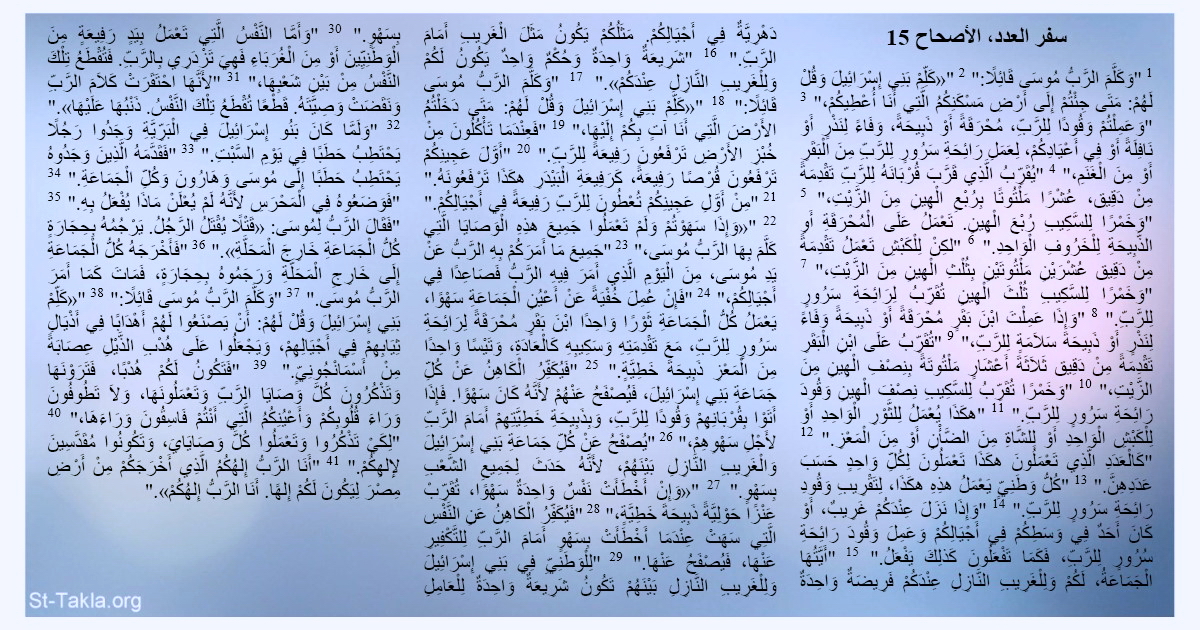 سفر العدد، الأصحاح 15
1 "وَكَلَّمَ الرَّبُّ مُوسَى قَائِلًا:" 2 "«كَلِّمْ بَنِي إِسْرَائِيلَ وَقُلْ
لَهُمْ: مَتَى جِئْتُمْ إِلَى أَرْضِ مَسْكَنِكُمُ الَّتِي أَنَا أُعْطِيكُمْ،" 3
"وَعَمِلْتُمْ وَقُودًا لِلرَّبِّ، مُحْرَقَةً أَوْ ذَبِيحَةً، وَفَاءً لِنَذْرٍ أَوْ
نَافِلَةً أَوْ فِي أَعْيَادِكُمْ، لِعَمَلِ رَائِحَةِ سَرُورٍ لِلرَّبِّ مِنَ الْبَقَرِ
أَوْ مِنَ الْغَنَمِ،" 4 "يُقَرِّبُ الَّذِي قَرَّبَ قُرْبَانَهُ لِلرَّبِّ تَقْدِمَةً
مِنْ دَقِيق، عُشْرًا مَلْتُوتًا بِرُبْعِ الْهِينِ مِنَ الزَّيْتِ،" 5
"وَخَمْرًا لِلسَّكِيبِ رُبُعَ الْهِينِ. تَعْمَلُ عَلَى الْمُحْرَقَةِ أَوِ
الذَّبِيحَةِ لِلْخَرُوفِ الْوَاحِدِ." 6 "لكِنْ لِلْكَبْشِ تَعْمَلُ تَقْدِمَةً
مِنْ دَقِيق عُشْرَيْنِ مَلْتُوتَيْنِ بِثُلْثِ الْهِينِ مِنَ الزَّيْتِ،" 7
"وَخَمْرًا لِلسَّكِيبِ ثُلْثَ الْهِينِ تُقَرِّبُ لِرَائِحَةِ سَرُورٍ
لِلرَّبِّ." 8 "وَإِذَا عَمِلْتَ ابْنَ بَقَرٍ مُحْرَقَةً أَوْ ذَبِيحَةً وَفَاءً
لِنَذْرٍ أَوْ ذَبِيحَةَ سَلاَمَةٍ لِلرَّبِّ،" 9 "تُقَرِّبُ عَلَى ابْنِ الْبَقَرِ
تَقْدِمَةً مِنْ دَقِيق ثَلاَثَةَ أَعْشَارٍ مَلْتُوتَةً بِنِصْفِ الْهِينِ مِنَ
الزَّيْتِ،" 10 "وَخَمْرًا تُقَرِّبُ لِلسَّكِيبِ نِصْفَ الْهِينِ وَقُودَ
رَائِحَةِ سَرُورٍ لِلرَّبِّ." 11 "هكَذَا يُعْمَلُ لِلثَّوْرِ الْوَاحِدِ أَوْ
لِلْكَبْشِ الْوَاحِدِ أَوْ لِلشَّاةِ مِنَ الضَّأْنِ أَوْ مِنَ الْمَعْزِ." 12
"كَالْعَدَدِ الَّذِي تَعْمَلُونَ هكَذَا تَعْمَلُونَ لِكُلِّ وَاحِدٍ حَسَبَ
عَدَدِهِنَّ." 13 "كُلُّ وَطَنِيٍّ يَعْمَلُ هذِهِ هكَذَا، لِتَقْرِيبِ وَقُودِ
رَائِحَةِ سَرُورٍ لِلرَّبِّ." 14 "وَإِذَا نَزَلَ عِنْدَكُمْ غَرِيبٌ، أَوْ
كَانَ أَحَدٌ فِي وَسَطِكُمْ فِي أَجْيَالِكُمْ وَعَمِلَ وَقُودَ رَائِحَةِ
سُرُورٍ لِلرَّبِّ، فَكَمَا تَفْعَلُونَ كَذلِكَ يَفْعَلُ." 15 "أَيَّتُهَا
الْجَمَاعَةُ، لَكُمْ وَلِلْغَرِيبِ النَّازِلِ عِنْدَكُمْ فَرِيضَةٌ وَاحِدَةٌ
دَهْرِيَّةٌ فِي أَجْيَالِكُمْ. مَثَلُكُمْ يَكُونُ مَثَلَ الْغَرِيبِ أَمَامَ
الرَّبِّ." 16 "شَرِيعَةٌ وَاحِدَةٌ وَحُكْمٌ وَاحِدٌ يَكُونُ لَكُمْ
وَلِلْغَرِيبِ النَّازِلِ عِنْدَكُمْ»." 17 "وَكَلَّمَ الرَّبُّ مُوسَى
قَائِلًا:" 18 "«كَلِّمْ بَنِي إِسْرَائِيلَ وَقُلْ لَهُمْ: مَتَى دَخَلْتُمُ
الأَرْضَ الَّتِي أَنَا آتٍ بِكُمْ إِلَيْهَا،" 19 "فَعِنْدَمَا تَأْكُلُونَ مِنْ
خُبْزِ الأَرْضِ تَرْفَعُونَ رَفِيعَةً لِلرَّبِّ." 20 "أَوَّلَ عَجِينِكُمْ
تَرْفَعُونَ قُرْصًا رَفِيعَةً، كَرَفِيعَةِ الْبَيْدَرِ هكَذَا تَرْفَعُونَهُ."
21 "مِنْ أَوَّلِ عَجِينِكُمْ تُعْطُونَ لِلرَّبِّ رَفِيعَةً فِي أَجْيَالِكُمْ."
22 "«وَإِذَا سَهَوْتُمْ وَلَمْ تَعْمَلُوا جَمِيعَ هذِهِ الْوَصَايَا الَّتِي
كَلَّمَ بِهَا الرَّبُّ مُوسَى،" 23 "جَمِيعَ مَا أَمَرَكُمْ بِهِ الرَّبُّ عَنْ
يَدِ مُوسَى، مِنَ الْيَوْمِ الَّذِي أَمَرَ فِيهِ الرَّبُّ فَصَاعِدًا فِي
أَجْيَالِكُمْ،" 24 "فَإِنْ عُمِلَ خُفْيَةً عَنْ أَعْيُنِ الْجَمَاعَةِ سَهْوًا،
يَعْمَلُ كُلُّ الْجَمَاعَةِ ثَوْرًا وَاحِدًا ابْنَ بَقَرٍ مُحْرَقَةً لِرَائِحَةِ
سَرُورٍ لِلرَّبِّ، مَعَ تَقْدِمَتِهِ وَسَكِيبِهِ كَالْعَادَةِ، وَتَيْسًا وَاحِدًا
مِنَ الْمَعْزِ ذَبِيحَةَ خَطِيَّةٍ." 25 "فَيُكَفِّرُ الْكَاهِنُ عَنْ كُلِّ
جَمَاعَةِ بَنِي إِسْرَائِيلَ، فَيُصْفَحُ عَنْهُمْ لأَنَّهُ كَانَ سَهْوًا. فَإِذَا
أَتَوْا بِقُرْبَانِهِمْ وَقُودًا لِلرَّبِّ، وَبِذَبِيحَةِ خَطِيَّتِهِمْ أَمَامَ الرَّبِّ
لأَجْلِ سَهْوِهِمْ،" 26 "يُصْفَحُ عَنْ كُلِّ جَمَاعَةِ بَنِي إِسْرَائِيلَ
وَالْغَرِيبِ النَّازِلِ بَيْنَهُمْ، لأَنَّهُ حَدَثَ لِجَمِيعِ الشَّعْبِ
بِسَهْوٍ." 27 "«وَإِنْ أَخْطَأَتْ نَفْسٌ وَاحِدَةٌ سَهْوًا، تُقَرِّبْ
عَنْزًا حَوْلِيَّةً ذَبِيحَةَ خَطِيَّةٍ،" 28 "فَيُكَفِّرُ الْكَاهِنُ عَنِ النَّفْسِ
الَّتِي سَهَتْ عِنْدَمَا أَخْطَأَتْ بِسَهْوٍ أَمَامَ الرَّبِّ لِلتَّكْفِيرِ
عَنْهَا، فَيُصْفَحُ عَنْهَا." 29 "لِلْوَطَنِيِّ فِي بَنِي إِسْرَائِيلَ
وَلِلْغَرِيبِ النَّازِلِ بَيْنَهُمْ تَكُونُ شَرِيعَةٌ وَاحِدَةٌ لِلْعَامِلِ
بِسَهْوٍ." 30 "وَأَمَّا النَّفْسُ الَّتِي تَعْمَلُ بِيَدٍ رَفِيعَةٍ مِنَ
الْوَطَنِيِّينَ أَوْ مِنَ الْغُرَبَاءِ فَهِيَ تَزْدَرِي بِالرَّبِّ. فَتُقْطَعُ تِلْكَ
النَّفْسُ مِنْ بَيْنِ شَعْبِهَا،" 31 "لأَنَّهَا احْتَقَرَتْ كَلاَمَ الرَّبِّ
وَنَقَضَتْ وَصِيَّتَهُ. قَطْعًا تُقْطَعُ تِلْكَ النَّفْسُ. ذَنْبُهَا عَلَيْهَا»."
32 "وَلَمَّا كَانَ بَنُو إِسْرَائِيلَ فِي الْبَرِّيَّةِ وَجَدُوا رَجُلًا
يَحْتَطِبُ حَطَبًا فِي يَوْمِ السَّبْتِ." 33 "فَقَدَّمَهُ الَّذِينَ وَجَدُوهُ
يَحْتَطِبُ حَطَبًا إِلَى مُوسَى وَهَارُونَ وَكُلِّ الْجَمَاعَةِ." 34
"فَوَضَعُوهُ فِي الْمَحْرَسِ لأَنَّهُ لَمْ يُعْلَنْ مَاذَا يُفْعَلُ بِهِ." 35
"فَقَالَ الرَّبُّ لِمُوسَى: «قَتْلًا يُقْتَلُ الرَّجُلُ. يَرْجُمُهُ بِحِجَارَةٍ
كُلُّ الْجَمَاعَةِ خَارِجَ الْمَحَلَّةِ»." 36 "فَأَخْرَجَهُ كُلُّ الْجَمَاعَةِ
إِلَى خَارِجِ الْمَحَلَّةِ وَرَجَمُوهُ بِحِجَارَةٍ، فَمَاتَ كَمَا أَمَرَ
الرَّبُّ مُوسَى." 37 "وَكَلَّمَ الرَّبُّ مُوسَى قَائِلًا:" 38 "«كَلِّمْ
بَنِي إِسْرَائِيلَ وَقُلْ لَهُمْ: أَنْ يَصْنَعُوا لَهُمْ أَهْدَابًا فِي أَذْيَالِ
ثِيَابِهِمْ فِي أَجْيَالِهِمْ، وَيَجْعَلُوا عَلَى هُدْبِ الذَّيْلِ عِصَابَةً
مِنْ أَسْمَانْجُونِيٍّ." 39 "فَتَكُونُ لَكُمْ هُدْبًا، فَتَرَوْنَهَا
وَتَذْكُرُونَ كُلَّ وَصَايَا الرَّبِّ وَتَعْمَلُونَهَا، وَلاَ تَطُوفُونَ
وَرَاءَ قُلُوبِكُمْ وَأَعْيُنِكُمُ الَّتِي أَنْتُمْ فَاسِقُونَ وَرَاءَهَا،" 40
"لِكَيْ تَذْكُرُوا وَتَعْمَلُوا كُلَّ وَصَايَايَ، وَتَكُونُوا مُقَدَّسِينَ
لإِلهِكُمْ." 41 "أَنَا الرَّبُّ إِلهُكُمُ الَّذِي أَخْرَجَكُمْ مِنْ أَرْضِ
مِصْرَ لِيَكُونَ لَكُمْ إِلهًا. أَنَا الرَّبُّ إِلهُكُمْ»."
St-Takla.org